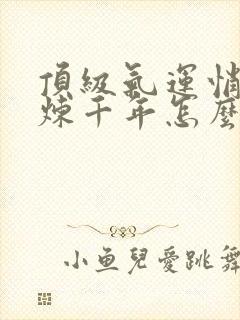 頂級氣運悄
煉千年怎麼
小魚兒愛跳舞